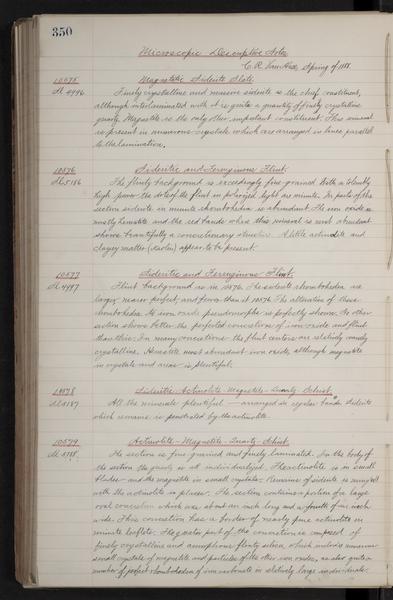 350
Microscopic Descriptive Notes
C. R. Van Hise, Spring of 1888.
10575 Magnetitic Siderite Slate.
Sl. 4496 Finely crystalline and massive siderite is the chief constituent,
although interlaminated with it is quite a quantity of finely crystalline
quartz. Magnetite is the only other important constituent. This mineral
is present in numerous crystals which are arranged in lines parallel
to the lamination.
10576 Sideritic and Ferruginous Flint.
Sl. 5186 The flinty background is exceedingly fine-grained. With a tolerably
high power the dots of the flint in polarized light are minute. In parts of the
section siderite in minute rhombohedra is abundant. The iron oxide is
mostly hematite and the red bands where this mineral is most abundant
shows beautifully a concretionary structure. A little actinolite and
clayey matter (kaolin) appear to be present.
10577 Sideritic and Ferruginous Flint.
Sl. 4497 Flint background as in 10576. The siderite rhombohedra are
larger, more perfect, and fewer than in 10576. The alteration of these
rhombohedra to iron oxide pseudomorphs is perfectly shown. No other
section shows better the perfected concretions of iron oxide and flint
than this. In many concretions the flint centers are relatively coarsely
crystalline. Hematite most abundant iron oxide, although magnetite
in crystals and areas is plentiful.
10578 Sideritic-Actinolite-Magnetite-Quartz-Schist.
Sl. 5187 All the minerals plentiful - arranged in regular bands. Siderite
which remains is penetrated by the actinolite.
10579 Actinolite-Magnetite-Quartz-Schist.
Sl. 5188 The section is fine grained and finely laminated. In the body of
the section the quartz is all individualized. The actinolite is in small
blades and the magnetite in small crystals. Remains of siderite is mingled
with the actinolite in places. The section contains a portion of a large
oval concretion which was about an inch long and a fourth of an inch
wide. This concretion has a border of nearly pure actinolite in
minute leaflets. The greater part of the concretion is composed of
finely crystalline and amorphous flinty silica, which includes numerous
small crystals of magnetite and particles of the other iron oxides, as also quite a
number of perfect rhombohedra of iron carbonate in relatively large individuals.